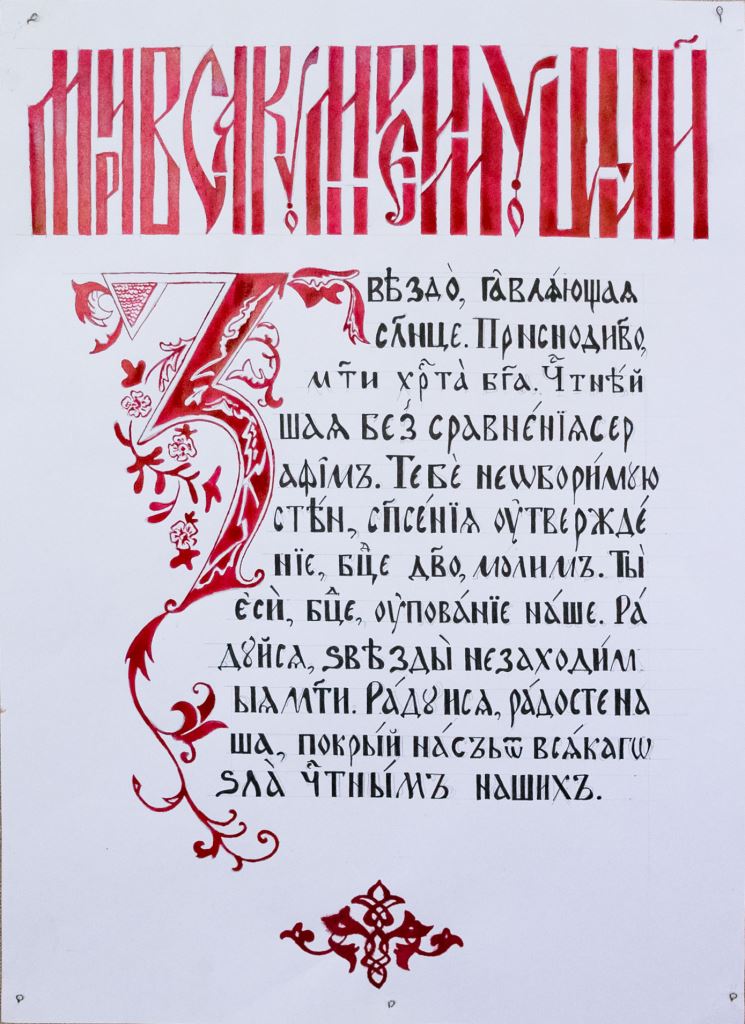 МИР ВСЯК УМ ПРЕИМУЩИЙ
Звѣздо̀, ꙗ҆влѧ́ющаѧ
сл҃нце. Приснодв҃о,
мт҃и хрⷭ҇та̀ бг҃а. Чⷭ҇тнѣ́й
шаѧ беꙁ̾ сравне́нїѧ сер
афі̑мъ. Тебѐ неѡбори́мꙋю
стѣ́н, сп҃се́нїѧ ѹ҆твержде́
нїе, бц҃е дв҃о, молимъ. Ты̀
є҆сѝ, бц҃е, ѹ҆пова́нїе на́ше. Ра́
дꙋйсѧ, ѕвѣзды̀ незаходи́м
ыѧ мт҃и. Ра́дꙋисѧ, ра́досте на
ша, покры́й на́съ ѿ всѧ́кагѡ
ѕла̀ чⷭ҇тны́мъ нашихъ.